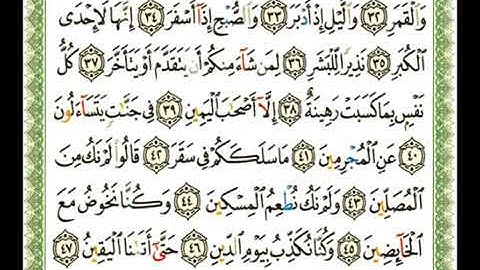 وَٱلْقَمَرِ ٣٢ وَٱلَّيْلِ إِذْ أَدْبَرَ ٣٣ وَٱلصُّبْحِ إِذَآ أَسْفَرَ ٣٤ إِنَّهَا لَإِحْدَى
ٱلْكُبَرِ ٣٥ نَذِيرًا لِّلْبَشَرِ ٣٦ لِمَن شَآءَ مِنكُمْ أَن يَتَقَدَّمَ أَوْ يَتَأَخَّرَ ٣٧ كُلُّ
نَفْسٍۭ بِمَا كَسَبَتْ رَهِينَةٌ ٣٨ إِلَّآ أَصْحَٰبَ ٱلْيَمِينِ ٣٩ فِى جَنَّٰتٍ يَتَسَآءَلُونَ
٤٠ عَنِ ٱلْمُجْرِمِينَ ٤١ مَا سَلَكَكُمْ فِى سَقَرَ ٤٢ قَالُوا۟ لَمْ نَكُ مِنَ
ٱلْمُصَلِّينَ ٤٣ وَلَمْ نَكُ نُطْعِمُ ٱلْمِسْكِينَ ٤٤ وَكُنَّا نَخُوضُ مَعَ
ٱلْخَآئِضِينَ ٤٥ وَكُنَّا نُكَذِّبُ بِيَوْمِ ٱلدِّينِ ٤٦ حَتَّىٰٓ أَتَىٰنَا ٱلْيَقِينُ ٤٧